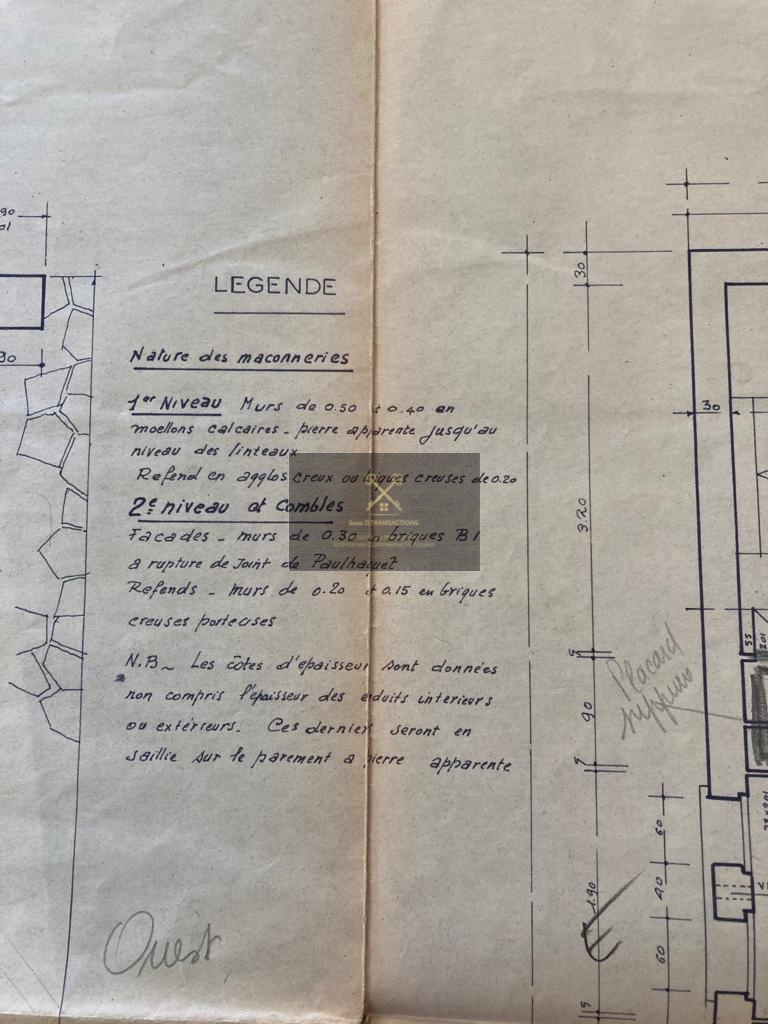 90
01
30
LEGENDE
Nature des maconneries
1er Niveau Murs de 0.50 et 0.40 en
moellons calcaires - pierre apparente jusqu'au
niveau des linteaux
Refend en agglos creux ou briques creuses de 0.20
2e niveau et Combles
Facades - murs de 0.30 en briques B1
a rupture de Joint de Paulhaguet
Refends - murs de 0.20 et 0.15 en briques
creuses porteuses
N.B ~ Les côtes d'epaisseur sont données
non compris l'épaisseur des enduits interieurs
ou extérieurs. Ces derniers seront en
saillie sur le parement a pierre apparente
Ouest
30
30
3.20
5
90
5
1.90
5
60
40
60
Placard